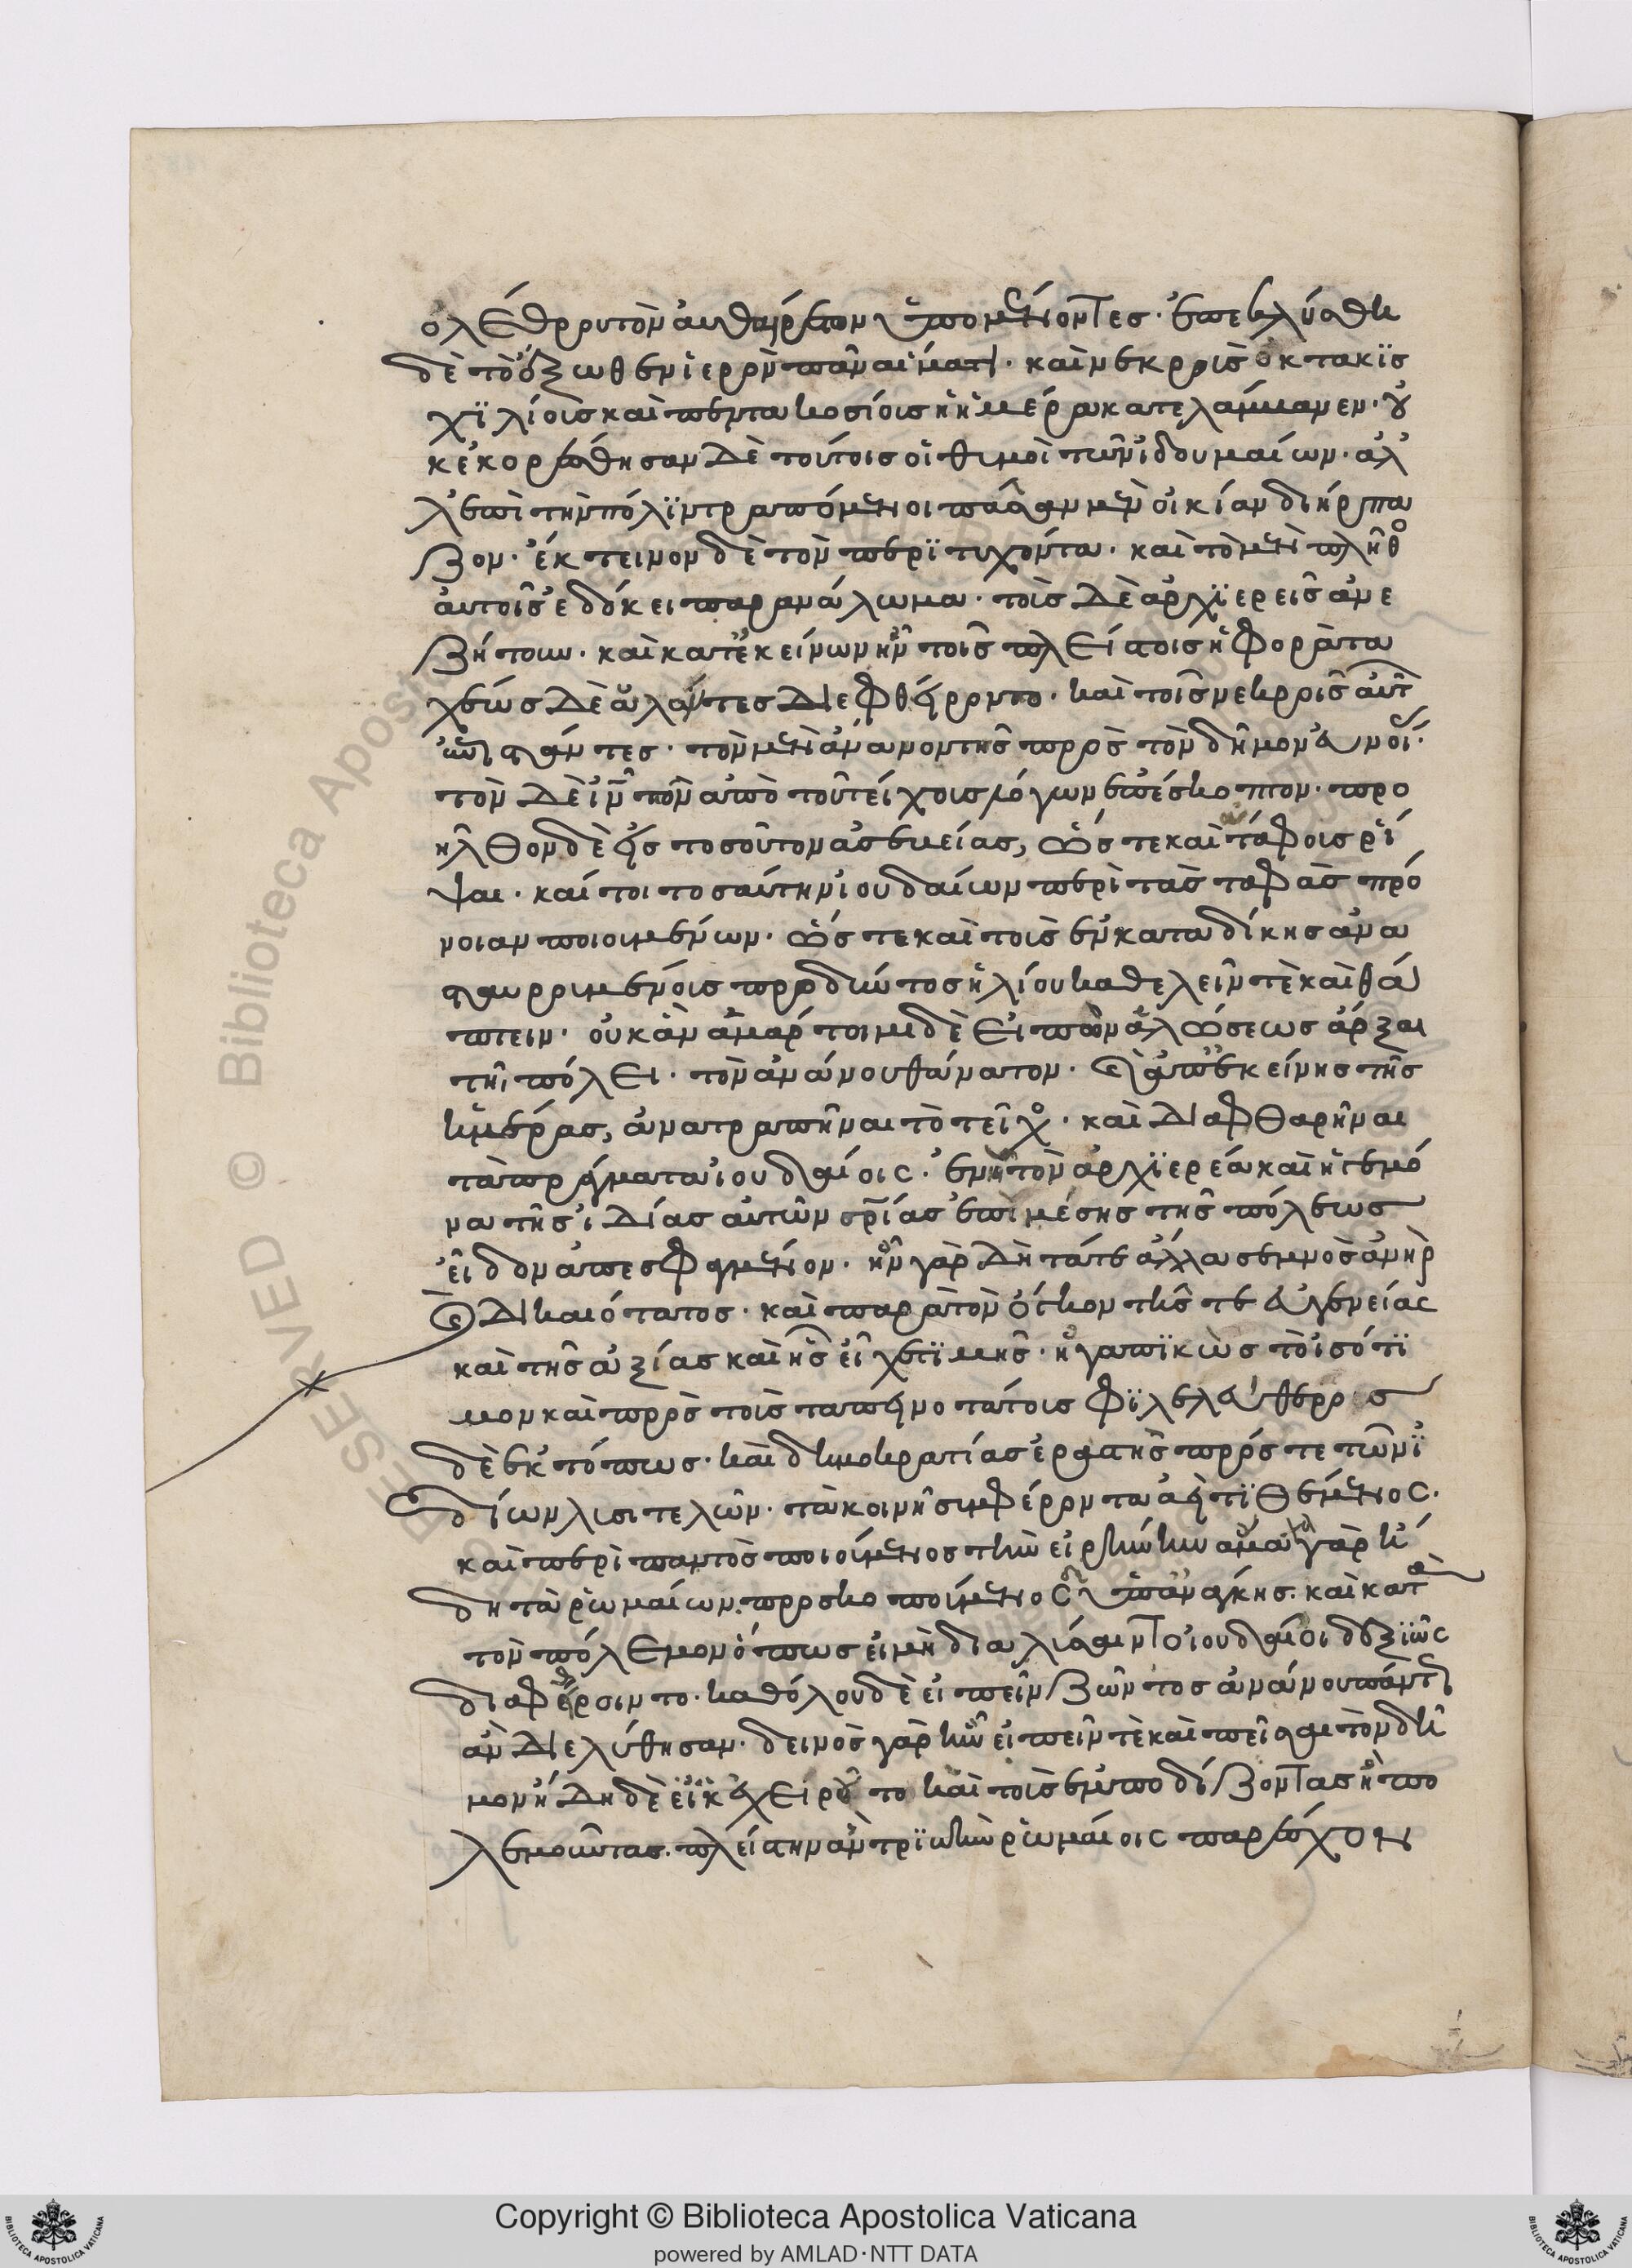 ὄλεθρον τὸν αὐθαίρετον ὑπομένοντες. ἐπεκλύσθη
δὲ τὸ ἔξωθεν ἱερὸν πᾶν αἵματι. καὶ νεκροὺς ὀκτακισ
χϊλίους καὶ πεντακοσίους ἡ ἡμέρα κατελάμβανεν. οὐ
κ ἐκορέσθησαν δὲ τούτοις οἱ θυμοὶ τῶν ἰδουμαίων. ἀλ
λ' ἐπὶ τὴν πόλϊν τραπόμενοι πᾶσαν μὲν οἰκίαν διήρπα
ζον. ἔκτεινον δὲ τὸν περϊτυχόντα. καὶ τὸ μὲν πλῆθος
αὐτοῖς ἐδόκει παρανάλωμα. τοὺς δὲ ἀρχϊερεῖς ἀνε
ζήτουν. καὶ κατ' ἐκείνων ἦν τοῖς πλείστοις ἡ φορὰ τα
χέως δὲ ἁλόντες διεφθείροντο. καὶ τοῖς νεκροῖς αὐτῶν
ἐπιστάντες. τὸν μὲν ἄνανον τῆς πρὸς τὸν δῆμον εὐνοί.
τὸν δὲ ἰν̅ τῶν ἀπὸ τοῦ τείχους λόγων ἐπέσκοπτον. προ
ῆλθον δὲ εἰς τοσοῦτον ἀσεβείας, ὥστε καὶ ἀτάφους ῥί
ψαι. καί τοι τοσαύτην ἰουδαίων περὶ τὰς ταφὰς πρό
νοιαν ποιουμένων. ὥστε καὶ τοὺς ἐν καταδίκης ἀνα
σταυρουμένους πρὸ δύντος ἡλίου καθελεῖν τὲ καὶ θά
πτειν. οὐκ ἂν ἁμάρτοιμι δὲ εἰπὼν ἁλώσεως ἄρξαι
τῆι πόλει. τὸν ἀνάνου θάνατον. καὶ ἀπ' ἐκείνης τῆς
ἡμέρας, ἀνατραπῆναι τὸ τεῖχος. καὶ διαφθαρῆναι
τὰ πράγματα ἰουδαίοις. ἐν ἧ τὸν ἀρχϊερέα καὶ ἡγεμό
να τῆς ἰδίας αὐτῶν σρ̅ίας ἐπὶ μέσης τῆς πόλεως
εἶδον ἀπεσφαγμένον. ἦν γὰρ δὴ τά τε ἄλλα σεμνὸς ἀνὴρ
καὶ δικαιότατος. καὶ παρὰ τὸν ὄγκον τῆς τε εὐγενείας
καὶ τῆς ἀξίας καὶ ἧς εἶχε τϊμῆς. ἠγαπϊκὼς τὸ ἰσότϊ
μον καὶ πρὸς τοὺς ταπεινοτάτους φϊλελεύθερος
δὲ ἐκτόπως. καὶ δημοκρατίας ἐραστὴς πρός τε τῶν ἰ̈
δίων λυσιτελῶν. τὰ κοινῆ συμφέροντα ἀεὶ τϊθέμενος.
καὶ περὶ παντὸς ποιούμενος τὴν εἰρήνην ἄμαχα γὰρ ἤ
δη τὰ ῥωμαίων. προσκοπούμενος ὑπ' ἀνάγκης. καὶ κατὰ
τὸν πόλεμον ὅπως εἰ μὴ διαλύσαιντο ἰουδαῖοι δεξϊῶς
διαφέροιντο. καθόλου δὲ εἰπεῖν ζῶντος ἀνάνου πάντως
ἂν διελύθησαν. δεινὸς γὰρ ἦν εἰπεῖν τὲ καὶ πεῖσαι τὸν δῆ
μον ἤδη δὲ ἐχειροῦτο καὶ τοὺς ἐμποδίζοντας ἢ πο
λεμοῦντας. πλείστην ἂν τρϊβὴν ῥωμαίοις παρέσχον